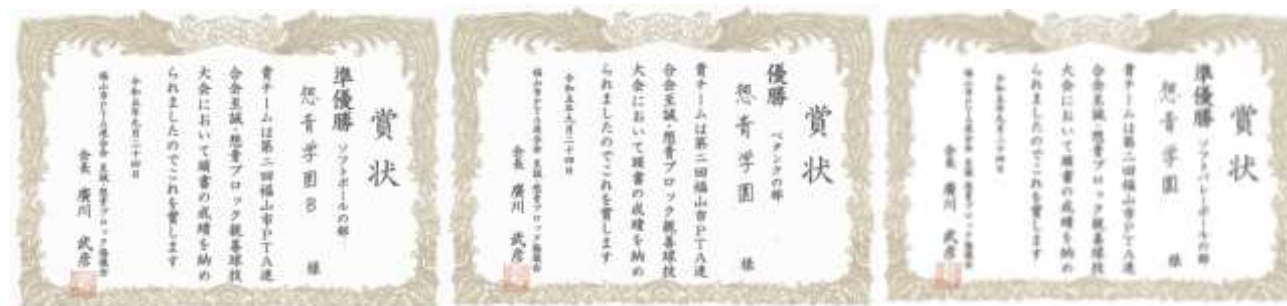 賞状
準優勝 ソフトボールの部
想青学園B 様
貴チームは第二回福山市PTA連
合会至誠・想青ブロック親善球技
大会において頭書の成績を納め
られましたのでこれを賞します
令和五年九月二十四日
福山市PTA連合会 至誠・想青ブロック協議会
会長 廣川 武彦
賞状
優勝 ペタンクの部
想青学園 様
貴チームは第二回福山市PTA連
合会至誠・想青ブロック親善球技
大会において頭書の成績を納め
られましたのでこれを賞します
令和五年九月二十四日
福山市PTA連合会 至誠・想青ブロック協議会
会長 廣川 武彦
賞状
準優勝 ソフトバレーボールの部
想青学園 様
貴チームは第二回福山市PTA連
合会至誠・想青ブロック親善球技
大会において頭書の成績を納め
られましたのでこれを賞します
令和五年九月二十四日
福山市PTA連合会 至誠・想青ブロック協議会
会長 廣川 武彦